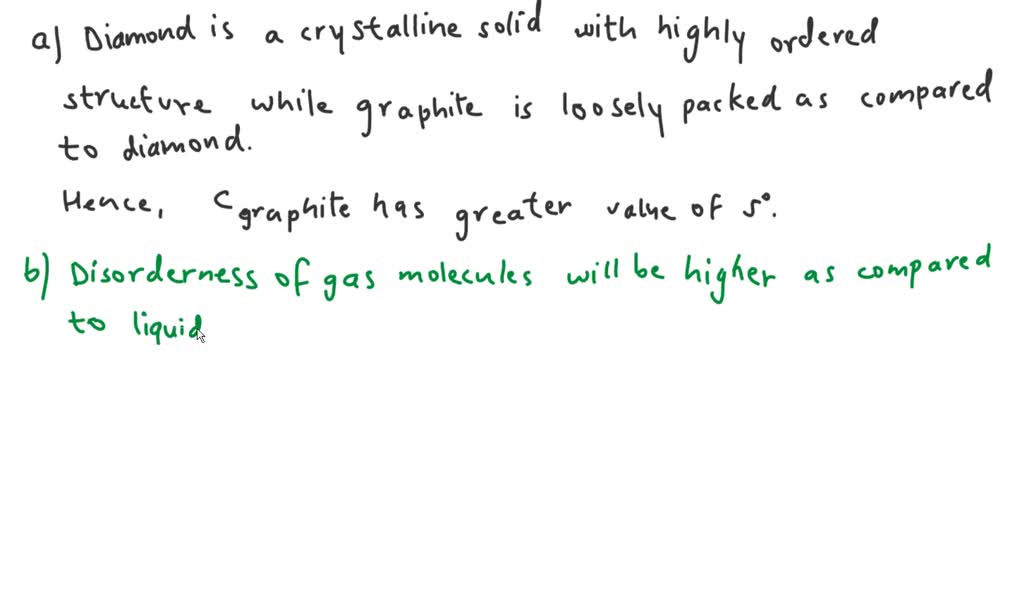 a) Diamond is a crystalline solid with highly ordered
structure while graphite is loosely packed as compared
to diamond.
Hence, C graphite has greater value of s°.
b) Disorderness of gas molecules will be higher as compared
to liquid